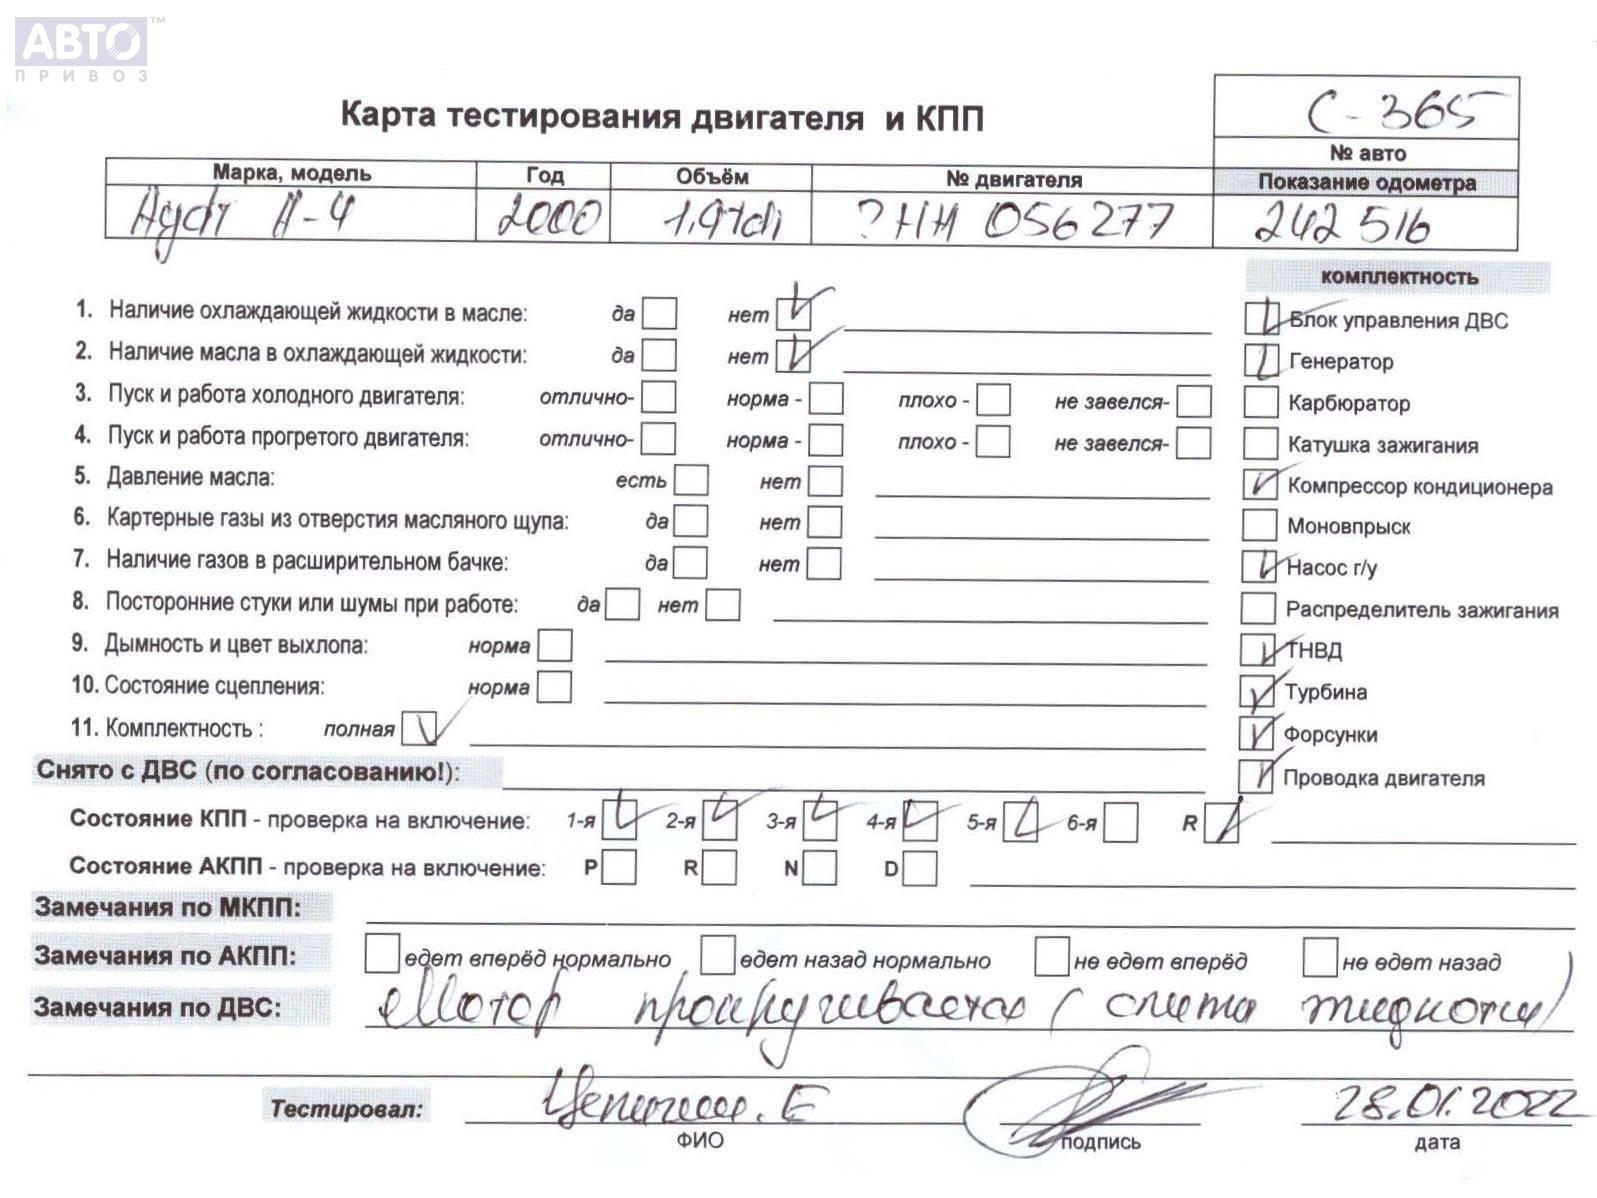 АВТО™
ПРИВОЗ
Карта тестирования двигателя и КПП
С-365
№ авто
Марка, модель Год Объём № двигателя Показание одометра
Ауди А-4 2000 1,9tdi ?НН 056277 242 516
комплектность
1. Наличие охлаждающей жидкости в масле: да нет
2. Наличие масла в охлаждающей жидкости: да нет
3. Пуск и работа холодного двигателя: отлично- норма - плохо - не завелся-
4. Пуск и работа прогретого двигателя: отлично- норма - плохо - не завелся-
5. Давление масла: есть нет
6. Картерные газы из отверстия масляного щупа: да нет
7. Наличие газов в расширительном бачке: да нет
8. Посторонние стуки или шумы при работе: да нет
9. Дымность и цвет выхлопа: норма
10. Состояние сцепления: норма
11. Комплектность : полная
Блок управления ДВС
Генератор
Карбюратор
Катушка зажигания
Компрессор кондиционера
Моновпрыск
Насос г/у
Распределитель зажигания
ТНВД
Турбина
Форсунки
Проводка двигателя
Снято с ДВС (по согласованию!):
Состояние КПП - проверка на включение: 1-я 2-я 3-я 4-я 5-я 6-я R
Состояние АКПП - проверка на включение: P R N D
Замечания по МКПП:
Замечания по АКПП: едет вперёд нормально едет назад нормально не едет вперёд не едет назад
Замечания по ДВС: Мотор прокручивается (слита жидкости)
Тестировал: 28.01.2022
ФИО подпись дата